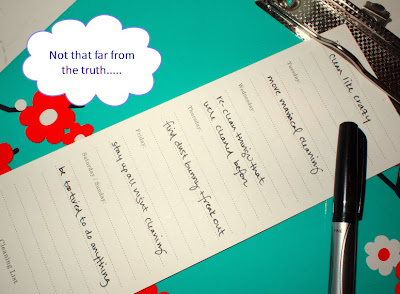 Not that far from
the truth.....
clean like crazy
Tuesday
more maniacal cleaning
Wednesday
re-clean things that
were cleaned before
Thursday
find dust bunny + freak out
Friday
stay up all night cleaning
Saturday/Sunday
be to tired to do anything
Cleaning List